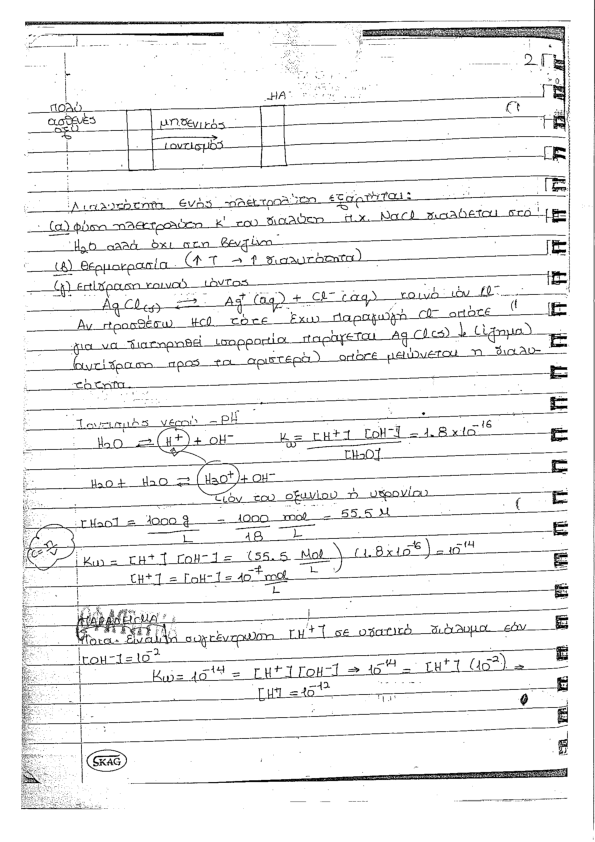 2
HA
Πολύ
ασθενές
οξύ
μηδενικός
ιοντισμός
Διαλυτότητα ενός ηλεκτρολύτη εξαρτάται:
(α) φύση ηλεκτρολύτη κ' του διαλύτη π.χ. NaCl διαλύεται στο
H₂O αλλά όχι στη βενζίνη
(β) Θερμοκρασία (↑ T → ↑ διαλυτότητα)
(γ) Επίδραση κοινού ιόντος
AgCl(s) ⇄ Ag⁺(aq) + Cl⁻(aq) κοινό ιόν Cl⁻
Αν προσθέσω HCl τότε έχω παραγωγή Cl⁻ οπότε
για να διατηρηθεί ισορροπία παράγεται AgCl(s) ↓ (ίζημα)
(αντίδραση προς τα αριστερά) οπότε μειώνεται η διαλυ-
τότητα.
Ιοντισμός νερού - pH
H₂O ⇄ H⁺ + OH⁻ Kω = [H⁺] [OH⁻] / [H₂O] = 1.8 × 10⁻¹⁶
H₂O + H₂O ⇄ H₃O⁺ + OH⁻
ιόν του οξωνίου ή υδρονίου
[H₂O] = 1000 g / L = 1000 / 18 mol / L = 55.5 M
C = n / V
Kω = [H⁺] [OH⁻] = (55.5 Mol / L) (1.8 × 10⁻¹⁶) = 10⁻¹⁴
[H⁺] = [OH⁻] = 10⁻⁷ mol / L
ΠΑΡΑΔΕΙΓΜΑ
Ποια είναι η συγκέντρωση [H⁺] σε υδατικό διάλυμα εάν
[OH⁻] = 10⁻²
Kω = 10⁻¹⁴ = [H⁺] [OH⁻] ⇒ 10⁻¹⁴ = [H⁺] (10⁻²) ⇒
[H⁺] = 10⁻¹²
SKAG